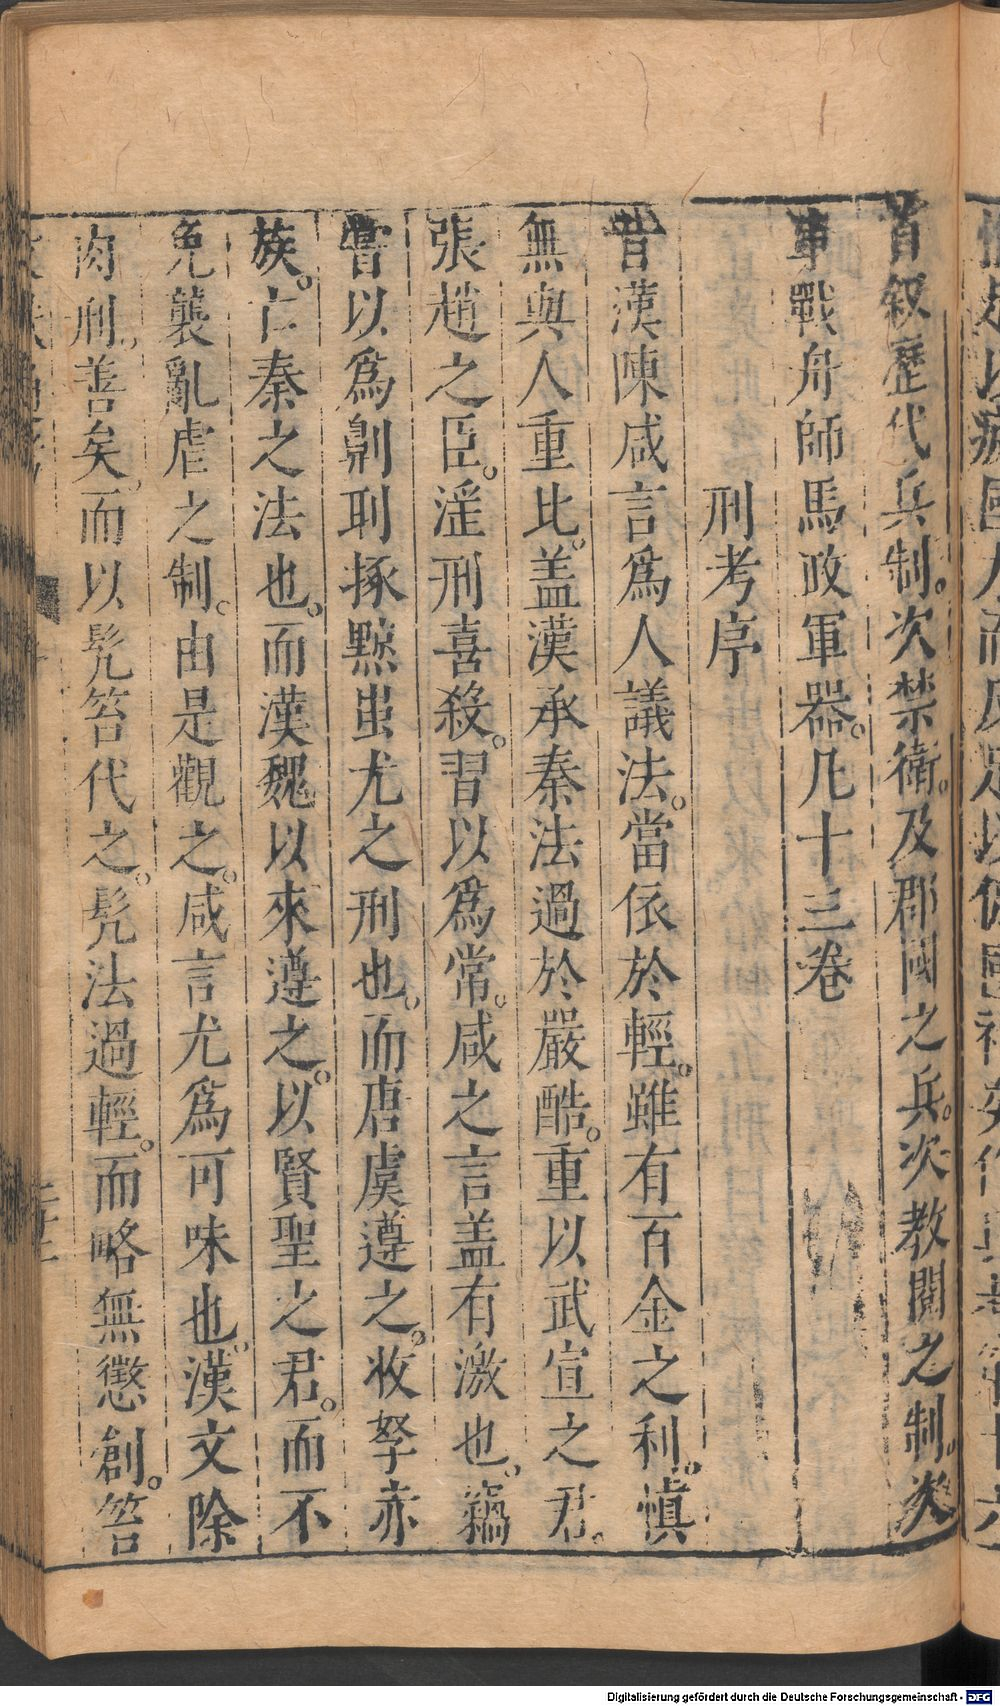 首叙歷代兵制。次禁衛。及郡國之兵。次教閱之制。次
車戰舟師馬政軍器。凡十三卷
刑考序
昔漢陳咸言爲人議法。當依於輕。雖有百金之利。愼
無與人重比。盖漢承秦法過於嚴酷。重以武宣之君。
張趙之臣。淫刑喜殺。習以爲常。咸之言盖有激也。竊
嘗以爲劓刵椓黥蚩尤之刑也。而唐虞遵之。收孥赤
族。亡秦之法也。而漢魏以來遵之。以賢聖之君。而不
免襲亂虐之制。由是觀之。咸言尤爲可味也。漢文除
肉刑。善矣。而以髠笞代之。髠法過輕。而略無懲創。笞
Digitalisierung gefördert durch die Deutsche Forschungsgemeinschaft - DFG